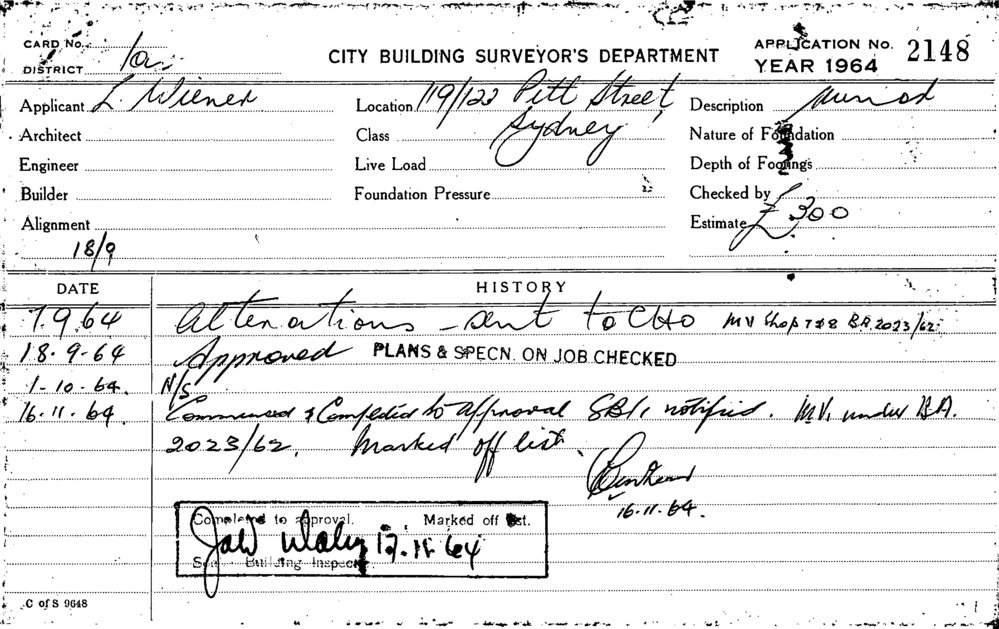 CARD No.
DISTRICT 1a.
CITY BUILDING SURVEYOR'S DEPARTMENT
APPLICATION No. 2148
YEAR 1964
Applicant L. Wiener
Location 119/122 Pitt Street,
Sydney
Description Minor
Architect
Class
Nature of Foundation
Engineer
Live Load
Depth of Footings
Builder
Foundation Pressure
Checked by
Alignment
Estimate £300
18/9
DATE HISTORY
7.9.64 Alterations - sent to CHO MV Shop 7 & 8 BA 2023/62
18.9-64 Approved PLANS & SPECN. ON JOB CHECKED
1-10-64. N/S
16.11.64 Commenced & Completed to approval SBI, notified. MV. under BA.
2023/62. Marked off list.
16.11.64.
Completed to approval. Marked off list.
17.11.64
Senior Building Inspector
C of S 9648